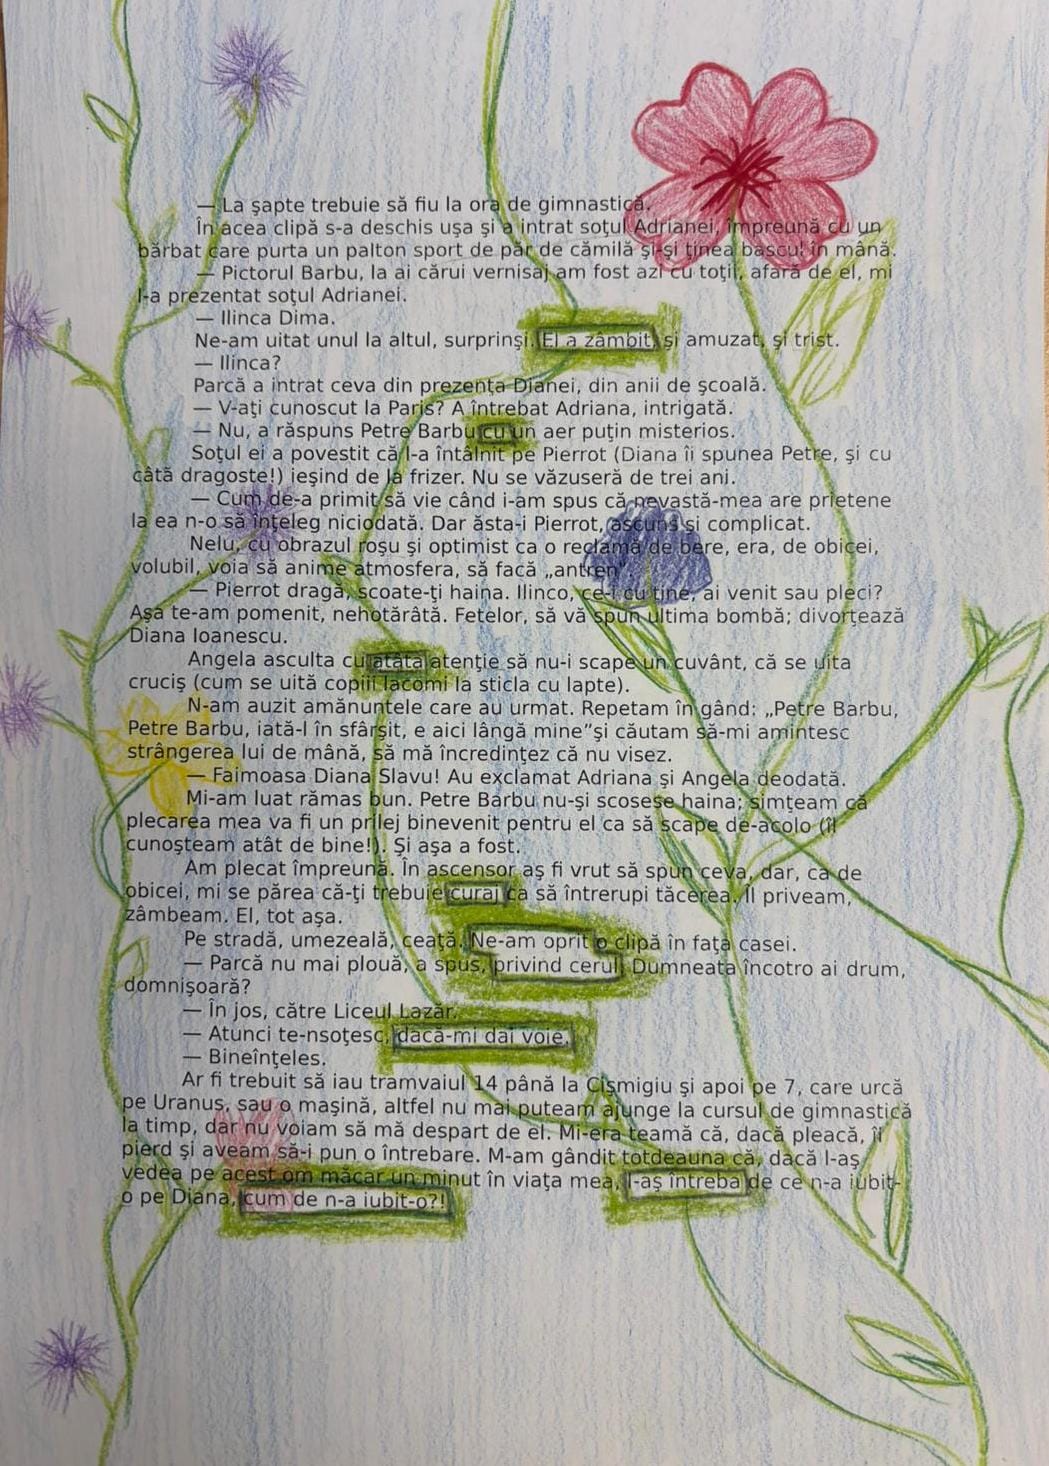 — La şapte trebuie să fiu la ora de gimnastică.
În acea clipă s-a deschis uşa şi a intrat soţul Adrianei, împreună cu un
bărbat care purta un palton sport de păr de cămilă şi-şi ţinea bascul în mână.
— Pictorul Barbu, la ai cărui vernisaj am fost azi cu toţii, afară de el, mi
l-a prezentat soţul Adrianei.
— Ilinca Dima.
Ne-am uitat unul la altul, surprinşi. El a zâmbit, şi amuzat, şi trist.
— Ilinca?
Parcă a intrat ceva din prezenţa Dianei, din anii de şcoală.
— V-aţi cunoscut la Paris? A întrebat Adriana, intrigată.
— Nu, a răspuns Petre Barbu cu un aer puţin misterios.
Soţul ei a povestit că l-a întâlnit pe Pierrot (Diana îi spunea Petre, şi cu
câtă dragoste!) ieşind de la frizer. Nu se văzuseră de trei ani.
— Cum de-a primit să vie când i-am spus că nevastă-mea are prietene
la ea n-o să înţeleg niciodată. Dar ăsta-i Pierrot, ascuns şi complicat.
Nelu, cu obrazul roşu şi optimist ca o reclamă de bere, era, de obicei,
volubil, voia să anime atmosfera, să facă „antren”
— Pierrot dragă, scoate-ţi haina. Ilinco, ce-i cu tine, ai venit sau pleci?
Aşa te-am pomenit, nehotărâtă. Fetelor, să vă spun ultima bombă; divorţează
Diana Ioanescu.
Angela asculta cu atâta atenţie să nu-i scape un cuvânt, că se uita
cruciş (cum se uită copiii lacomi la sticla cu lapte).
N-am auzit amănuntele care au urmat. Repetam în gând: „Petre Barbu,
Petre Barbu, iată-l în sfârşit, e aici lângă mine”şi căutam să-mi amintesc
strângerea lui de mână, să mă încredinţez că nu visez.
— Faimoasa Diana Slavu! Au exclamat Adriana şi Angela deodată.
Mi-am luat rămas bun. Petre Barbu nu-şi scosese haina; simţeam că
plecarea mea va fi un prilej binevenit pentru el ca să scape de-acolo (îl
cunoşteam atât de bine!). Şi aşa a fost.
Am plecat împreună. În ascensor aş fi vrut să spun ceva, dar, ca de
obicei, mi se părea că-ţi trebuie curaj ca să întrerupi tăcerea. Îl priveam,
zâmbeam. El, tot aşa.
Pe stradă, umezeală, ceaţă. Ne-am oprit o clipă în faţa casei.
— Parcă nu mai plouă, a spus, privind cerul. Dumneata încotro ai drum,
domnişoară?
— În jos, către Liceul Lazăr.
— Atunci te-nsoţesc, dacă-mi dai voie.
— Bineînţeles.
Ar fi trebuit să iau tramvaiul 14 până la Cişmigiu şi apoi pe 7, care urcă
pe Uranus, sau o maşină, altfel nu mai puteam ajunge la cursul de gimnastică
la timp, dar nu voiam să mă despart de el. Mi-era teamă că, dacă pleacă, îl
pierd şi aveam să-i pun o întrebare. M-am gândit totdeauna că, dacă l-aş
vedea pe acest om măcar un minut în viaţa mea, l-aş întreba de ce n-a iubit-
o pe Diana, cum de n-a iubit-o?!